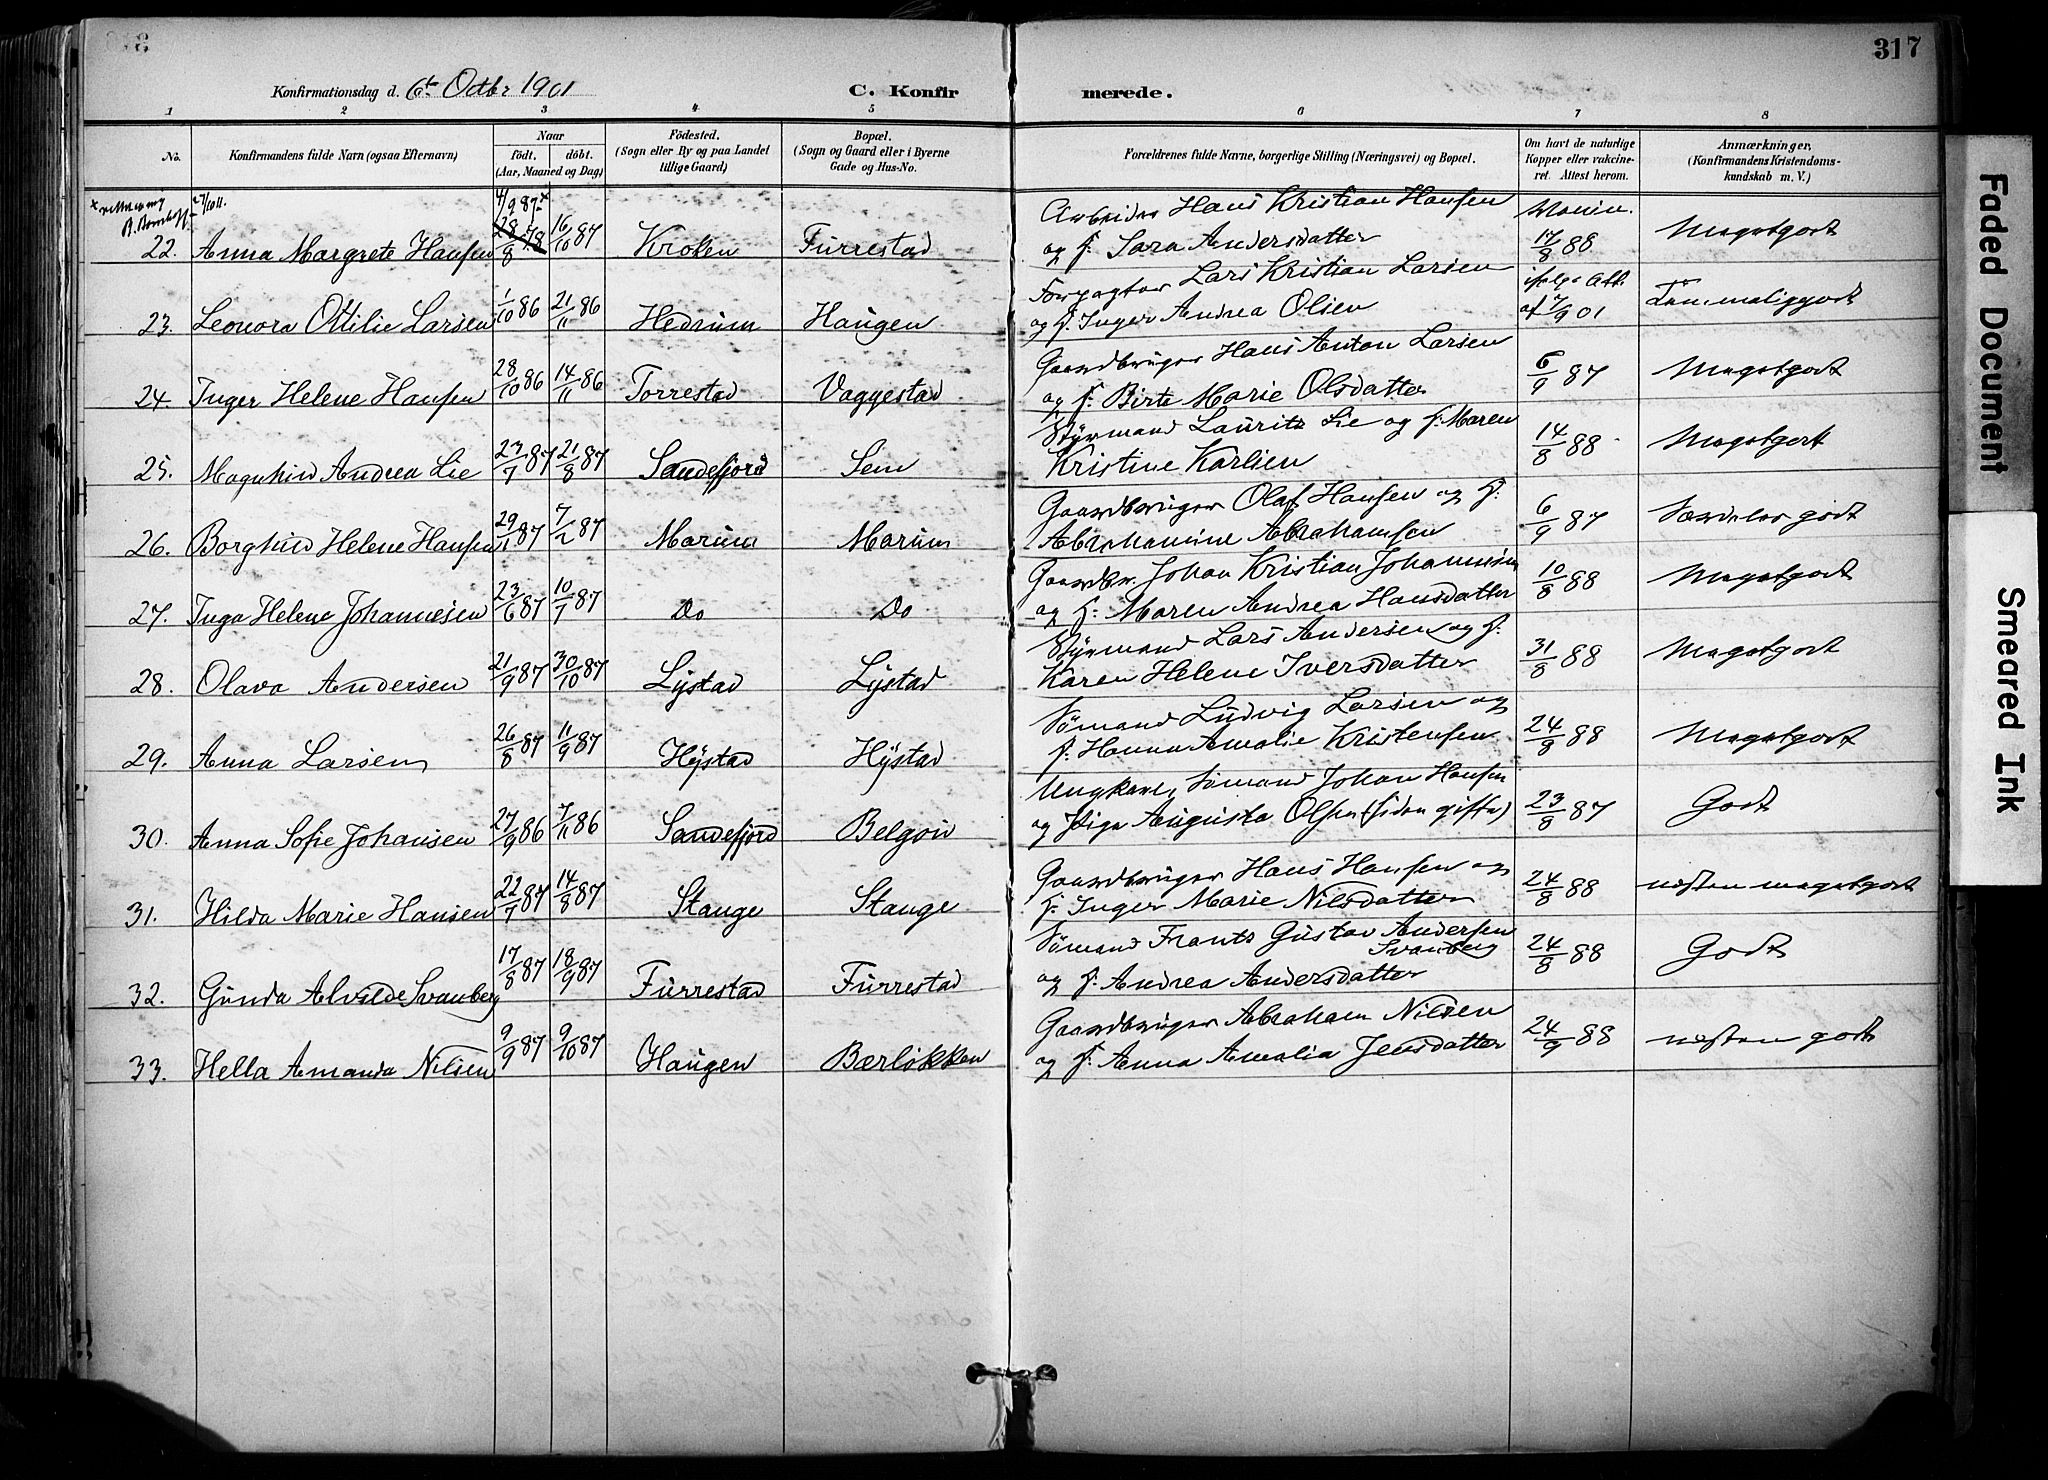 317
Konfirmationsdag d. 6te Octbr 1901
C. Konfirmerede.
1 2 3 4 5 6 7 8
No. Konfirmandens fulde Navn (ogsaa Efternavn) Naar født, døbt. (Aar, Maaned og Dag) Födested, (Sogn eller By og paa Landet tillige Gaard) Bopæl. (Sogn og Gaard eller i Byerne Gade og Hus-No. Forældrenes fulde Navne, borgerlige Stilling (Næringsvei) og Bopæl. Om havt de naturlige Kopper eller vakcineret. Attest herom. Anmærkninger, (Konfirmandens Kristendomskundskab m. V.)
4/9 87 x
22. Anna Margrete Hansen 28/8 78 16/10 87 Kroken Furrestad Arbeider Hans Kristian Hansen
og f. Sara Andersdatter 17/8 88 Megetgodt
23. Leonora Ottilie Larsen 1/10 86 21/11 86 Hedrum Haugen Forpagter Lars Kristian Larsen
og f. Inger Andrea Olsen ifølge Att. af 7/9 01 Tem.meliggodt
24. Inger Helene Hansen 28/10 86 14/11 86 Torrestad Vaggestad Gaardbruger Hans Anton Larsen
og f. Birte Marie Olsdatter 6/9 87 Megetgodt
25. Magnhild Andrea Lie 23/7 87 21/8 87 Sandefjord Sem Styrmand Laurits Lie og f. Maren
Kristine Karlsen 14/8 88 Megetgodt
26. Borghild Helene Hansen 29/1 87 7/2 87 Marum Marum Gaardbruger Olaf Hansen og f.
Abrahamine Abrahamsen 6/9 87 Særdeles godt
27. Inga Helene Johannesen 23/6 87 10/7 87 Do Do Gaardbr. Johan Kristian Johannesen
og f. Maren Andrea Hansdatter 10/8 88 Megetgodt
28. Olava Andersen 21/9 87 30/10 87 Lystad Lystad Styrmand Lars Andersen og f.
Karen Helene Iversdatter 31/8 88 Megetgodt
29. Anna Larsen 26/8 87 11/9 87 Hystad Hystad Sømand Ludvig Larsen og
f. Hanna Amalie Kristensen 24/8 88 Megetgodt
30. Anna Sofie Johansen 27/9 86 7/11 86 Sandefjord Belgoin Ungkarl, Sømand Johan Hansen
og Pige Augusta Olsen (siden gifte) 23/8 87 Godt
31. Hilda Marie Hansen 22/7 87 14/8 87 Stange Stange Gaardbruger Hans Hansen og
f. Inger Marie Nilsdatter 24/8 88 næsten megetgodt
32. Gunda Alvilde Svanberg 17/8 87 18/9 87 Furrestad Furrestad Sømand Frants Gustav Andersen
Svanberg
og f. Andrea Andersdatter 24/8 88 Godt
33. Hella Amanda Nilsen 9/9 87 9/10 87 Haugen Bærløkken Gaardbruger Abraham Nilsen
og f. Anna Amalia Jensdatter 24/9 88 næsten godt
Faded Document
Smeared Ink